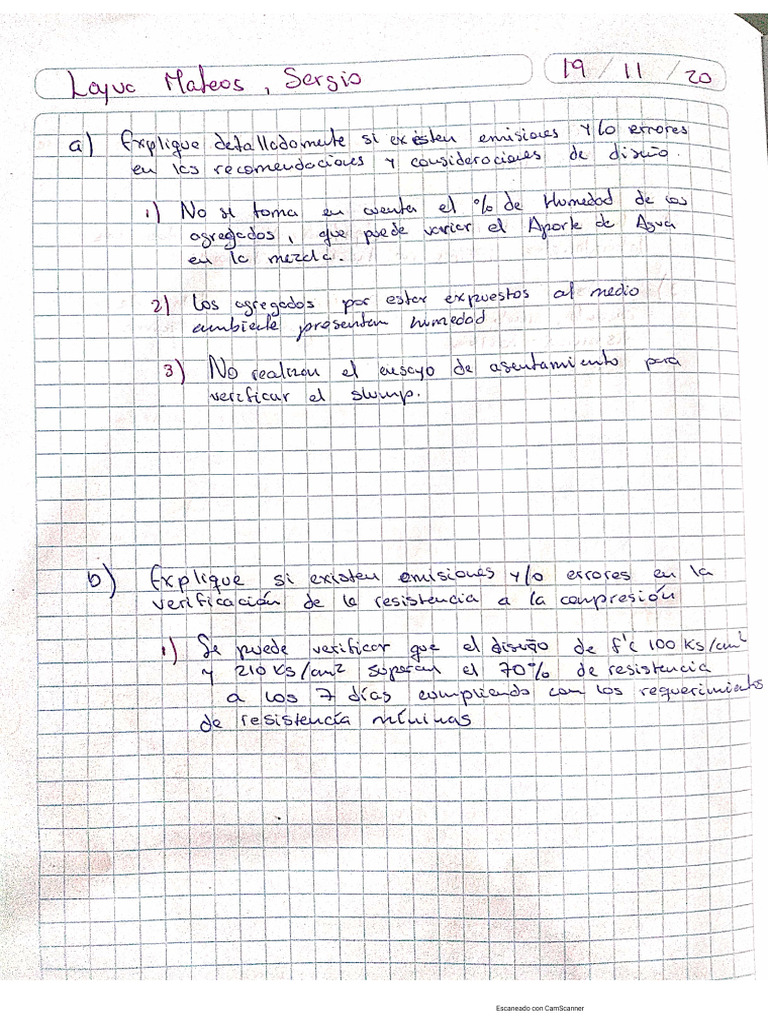 Layuc Mateos, Sergio
19 / 11 / 20
a) Explique detalladamente si existen emisiones y/o errores
en las recomendaciones y consideraciones de diseño.
1) No se toma en cuenta el % de Humedad de los
agregados, que puede variar el Aporte de Agua
en la mezcla.
2) Los agregados por estar expuestos al medio
ambiente presentan humedad.
3) No realizan el ensayo de asentamiento para
verificar el slump.
b) Explique si existen emisiones y/o errores en la
verificación de la resistencia a la compresión
1) Se puede verificar que el diseño de f'c 100 Ks/cm²
y 210 Ks/cm² superan el 70% de resistencia
a los 7 días cumpliendo con los requerimientos
de resistencia mínimas
Escaneado con CamScanner